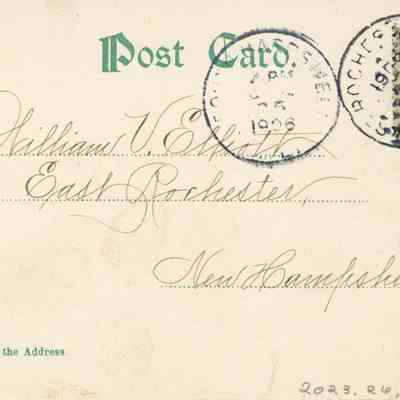 Post Card.
HARPSWELL
APR
25
1906
ROCHES
190
William V. Elliott
East Rochester,
New Hampshi
the Address.
2023.26.